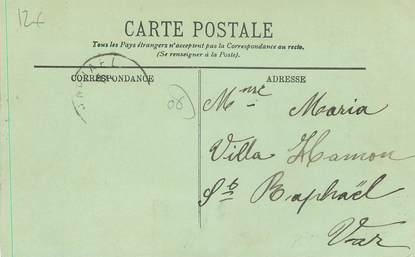 12€
CARTE POSTALE
Tous les Pays étrangers n'acceptent pas la Correspondance au recto.
(Se renseigner à la Poste).
CORRESPONDANCE
ADRESSE
RAPHAEL
06
Maria
Villa Hamon
St Raphaël
Var